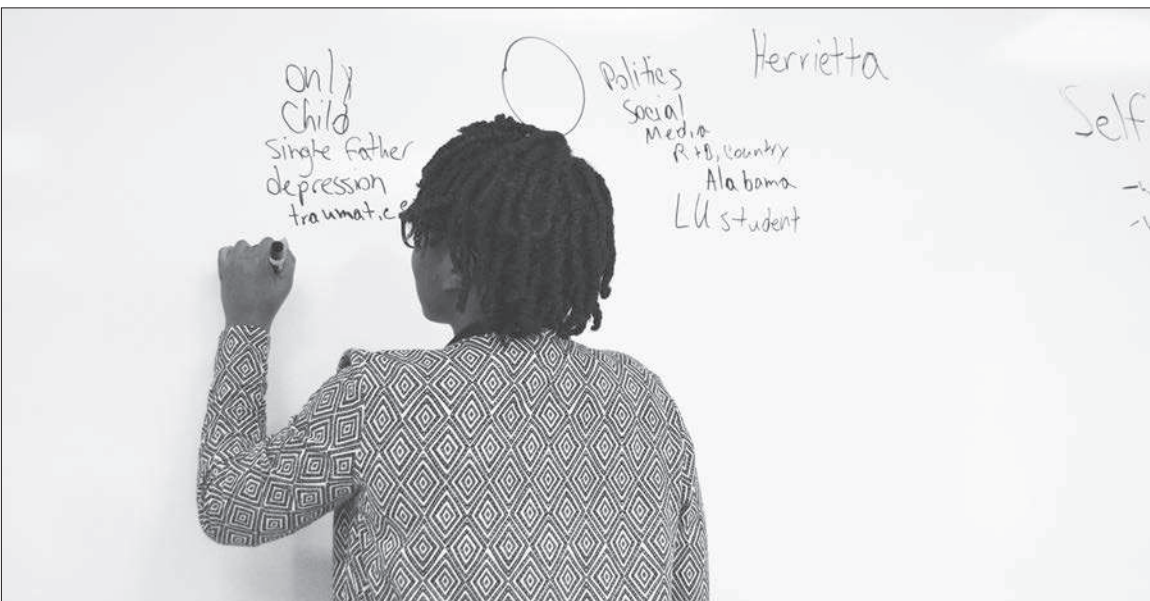 only
Child
Single father
depression
Politics
Social
Media
R+B, Country
Alabama
LU student
Herrietta
Self